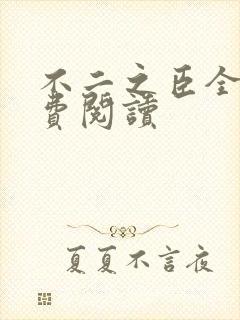 不二之臣全
費閱讀
夏夏不言夜